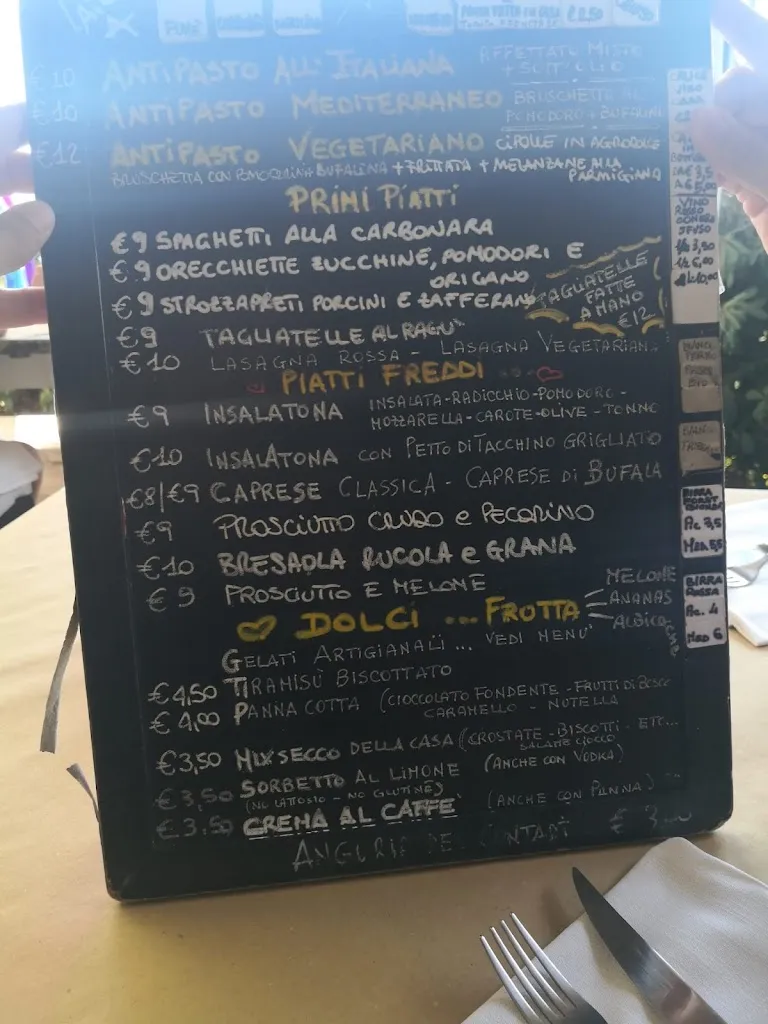 €10 ANTIPASTO ALL'ITALIANA AFFETTATO MISTO
+ SOTT'OLIO
€10 ANTIPASTO MEDITERRANEO BRUSCHETTE AL
POMODORO + BUFALINI
€12 ANTIPASTO VEGETARIANO CIPOLLE IN AGRODOLCE
BRUSCHETTA CON POMODORINI BUFALINA + FRITTATA + MELANZANE ALLA
PARMIGIANA
PRIMI PIATTI
€9 SPAGHETTI ALLA CARBONARA
€9 ORECCHIETTE ZUCCHINE, POMODORI E
ORIGANO
€9 STROZZAPRETI PORCINI E ZAFFERANO
TAGLIATELLE
FATTE
A MANO
€12
€9 TAGLIATELLE AL RAGU'
€10 LASAGNA ROSSA - LASAGNA VEGETARIAN
PIATTI FREDDI
€9 INSALATONA INSALATA-RADICCHIO-POMODORO-
MOZZARELLA-CAROTE-OLIVE-TONNO
€10 INSALATONA CON PETTO DI TACCHINO GRIGLIATO
€8/€9 CAPRESE CLASSICA - CAPRESE DI BUFALA
€9 PROSCIUTTO CRUDO e PECORINO
€10 BRESAOLA RUCOLA e GRANA
€9 PROSCIUTTO E MELONE
DOLCI ... FRUTTA
MELONE
ANANAS
GELATI ARTIGIANALI ... VEDI MENU'
€4,50 TIRAMISÙ BISCOTTATO
€4,00 PANNA COTTA (CIOCCOLATO FONDENTE - FRUTTI DI BOSCO
CARAMELLO - NUTELLA
€3,50 MIX SECCO DELLA CASA (CROSTATE - BISCOTTI - ETC...
SALAME CIOCCO
€3,50 SORBETTO AL LIMONE (ANCHE CON VODKA)
(NO LATTOSIO - NO GLUTINE)
€3.50 CREMA AL CAFFE' (ANCHE CON PANNA)
VINO
ROSSO
SFUSO
1/4 3,50
1/2 6,00
1L 10,00
BIRRA
Pic 3,5
Med 5,5
BIRRA
ROSSA
Pic. 4
Med 6